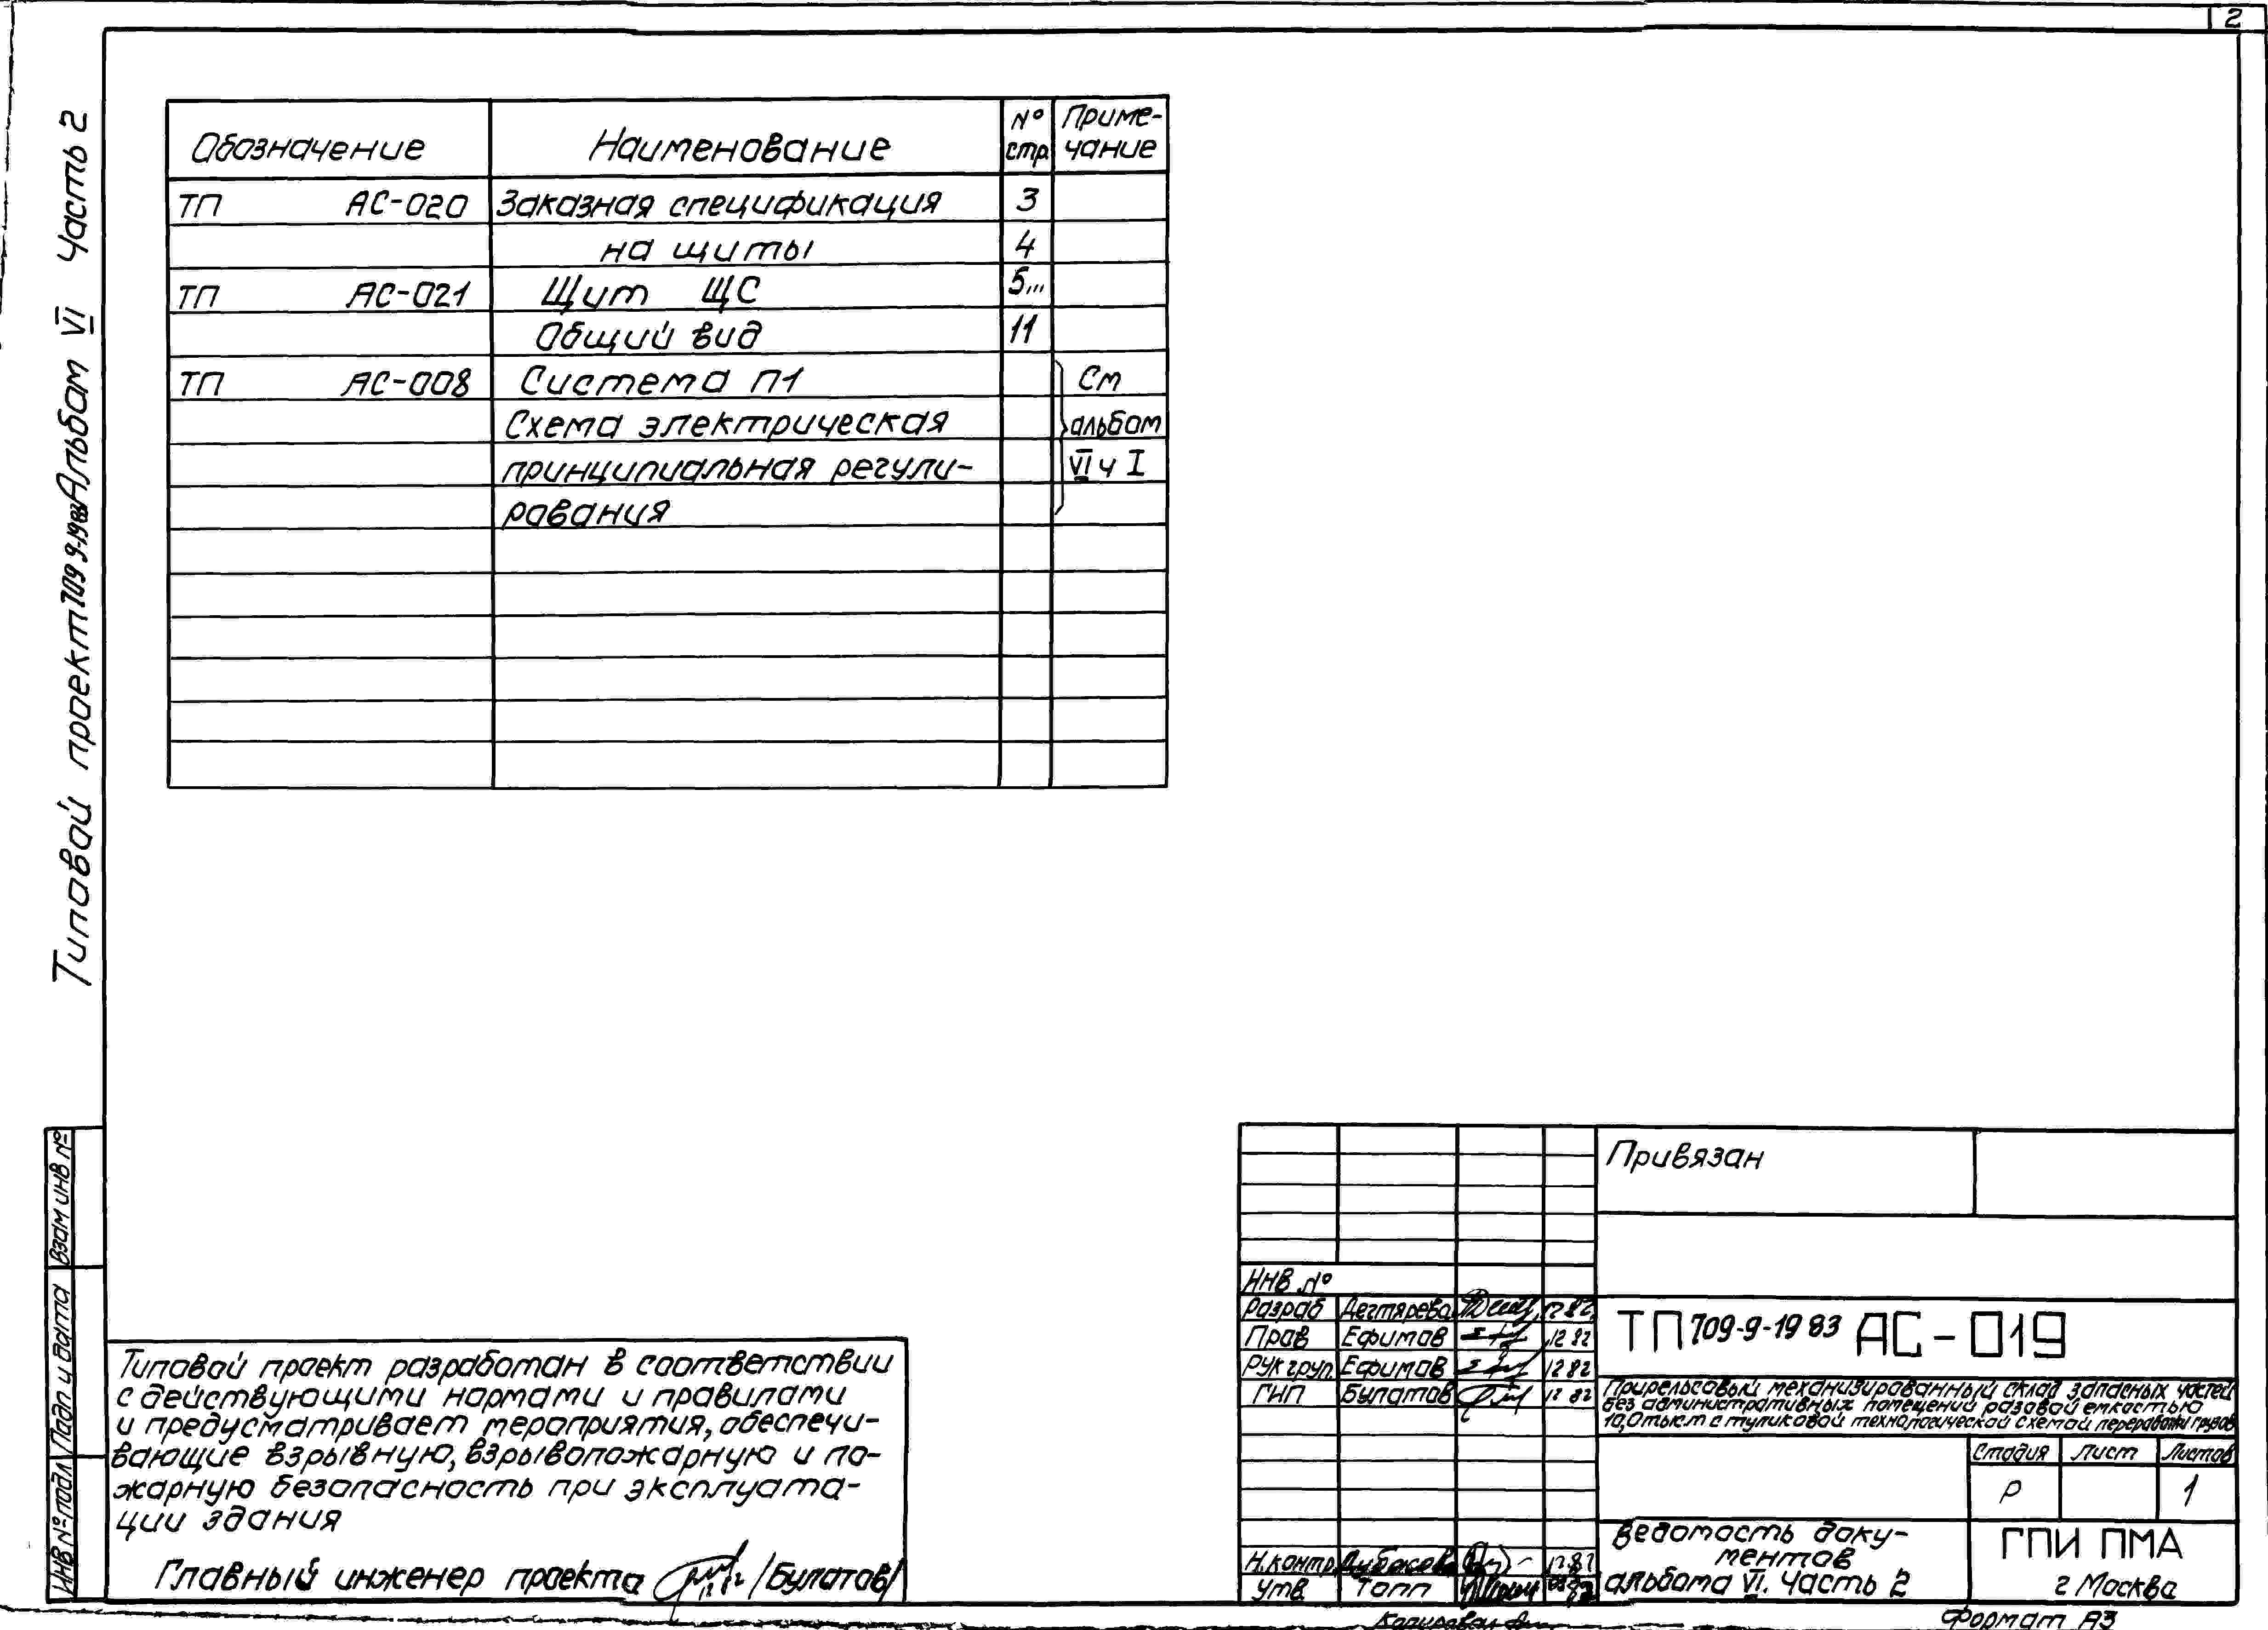 2
Типовой проект 709-9-19 83 Альбом VI Часть 2
Обозначение Наименование № стр. Приме-чание
ТП АС-020 Заказная спецификация 3
на щиты 4
ТП АС-021 Щит ЩС 5...
Общий вид 11
ТП АС-008 Система П1 См
Схема электрическая альбом
принципиальная регули- VI ч I
рования
Взам инв №
Подп и дата
Инв № подл
Типовой проект разработан в соответствии
с действующими нормами и правилами
и предусматривает мероприятия, обеспечи-
вающие взрывную, взрывопожарную и по-
жарную безопасность при эксплуата-
ции здания
Главный инженер проекта /Булатов/
Привязан
Инв №
Разраб Дегтярева 12 82
Пров Ефимов 12 82
Рук груп. Ефимов 12 82
ГИП Булатов 12 82
Н.контр. 12.82
Утв. Топп
ТП 709-9-19 83 АС-019
Прирельсовый механизированный склад запасных частей
без административных помещений разовой емкостью
10,0 тыс.т с тупиковой технологической схемой переработки грузов
Стадия Лист Листов
Р 1
Ведомость доку-
ментов
альбома VI. Часть 2
ГПИ ПМА
г Москва
Копировал
Формат А3